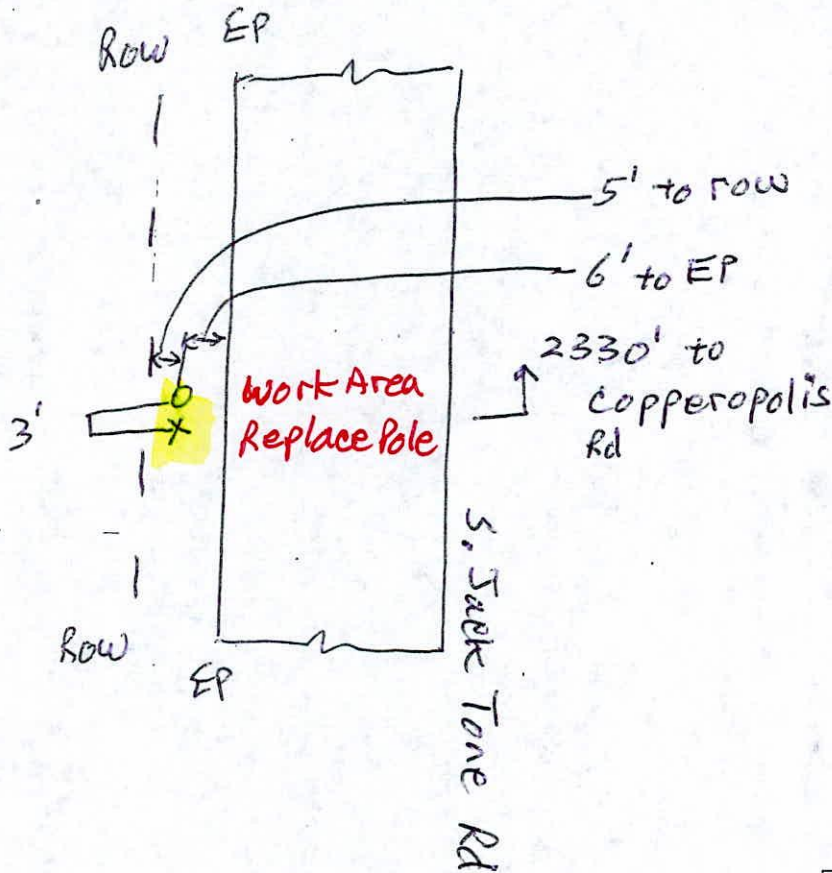 Row
EP
5' to row
6' to EP
2330' to
Copperopolis
Rd
3'
Work Area
Replace Pole
O
X
S. Jack Tone Rd
Row
EP